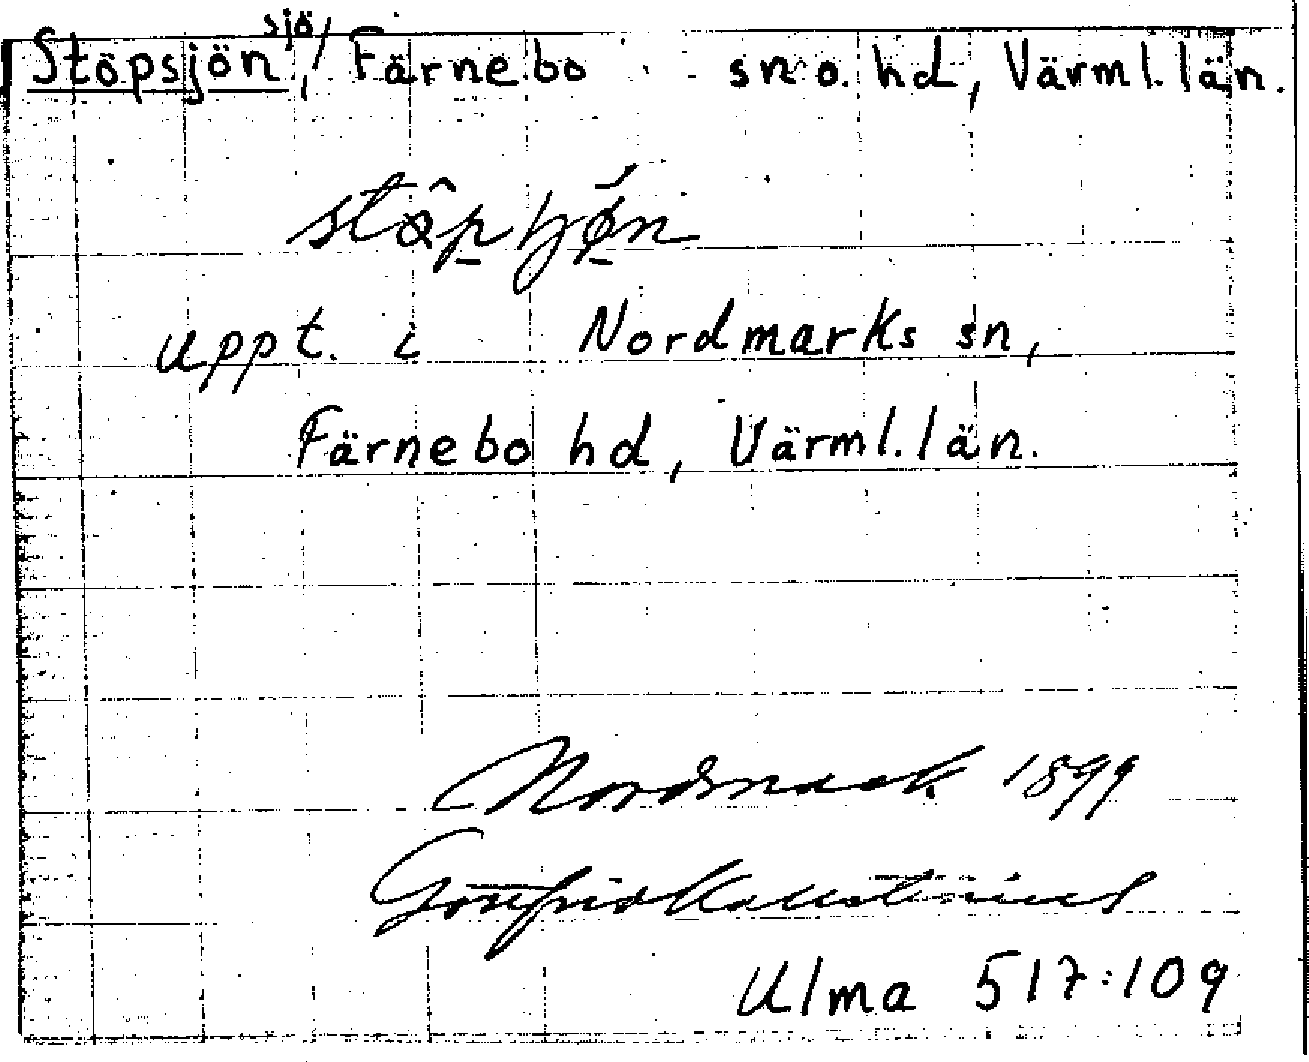 Stöpsjön, sjö, Färnebo sn o. hd, Värml. län.
uppt. i Nordmarks sn,
Färnebo hd, Värml. län.
Nordmark 1899
Gottfrid Kallstenius
Ulma 517:109